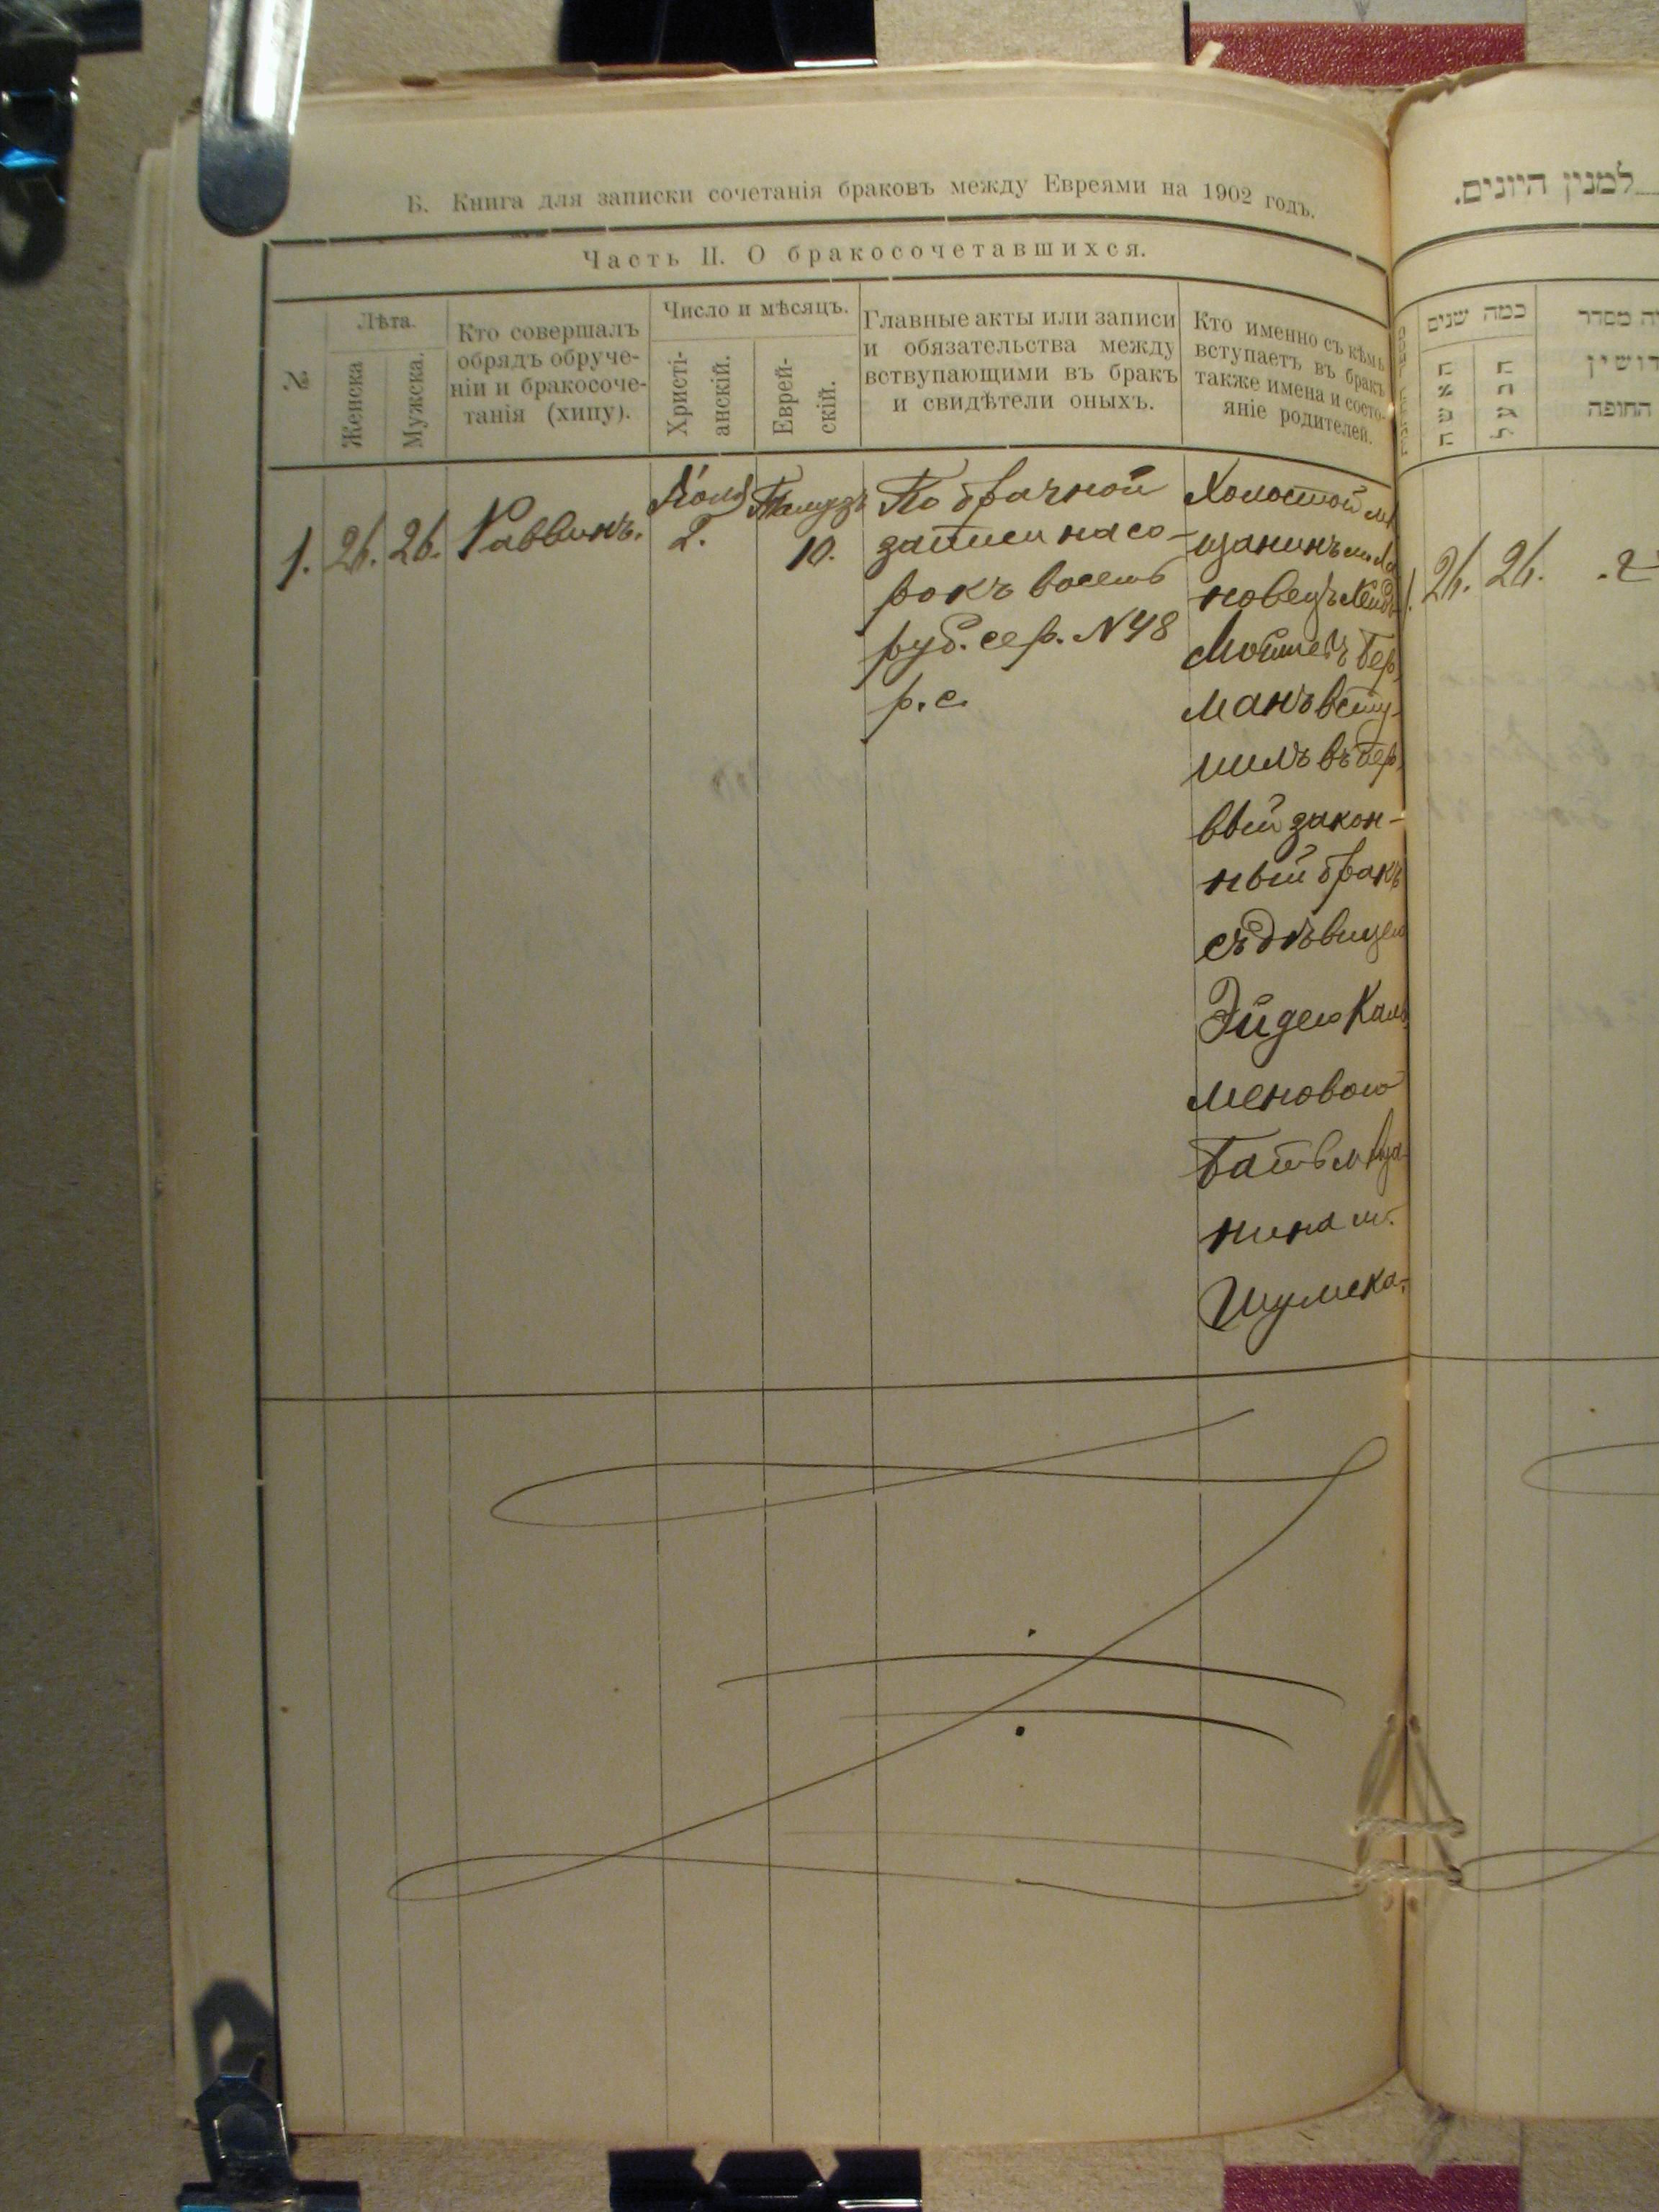 Б. Книга для записки сочетанія браковъ между Евреями на 1902 годъ.
Часть II. О бракосочетавшихся.
№
Лѣта.
Женска
Мужска.
Кто совершалъ
обрядъ обруче-
ніи и бракосоче-
танія (хипу).
Число и мѣсяцъ.
Христі-
анскій.
Еврей-
скій.
Главные акты или записи
и обязательства между
вствупающими въ бракъ
и свидѣтели оныхъ.
Кто именно съ кѣмъ
вступаетъ въ бракъ
также имена и состо-
яніе родителей.
1.
26.
26.
Раввинъ.
Іюля
2.
Тамузъ
10.
По брачной
записи на со-
рокъ восемь
руб. сер. N 48
р. с.
Холостой мѣ
щанинъ м.
новецъ
Мошекъ Бер
манъ всту-
пилъ въ пер
вый закон-
ный бракъ
съ дѣвицею
Эйдею Каль
меновою
Батьмѣща
нина м.
Шумска.
למנין היונים.
כמה שנים
האשה
הבעל
מסדר
החופה
26.
26.